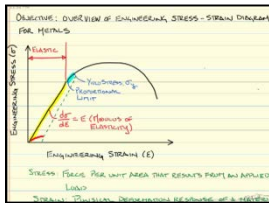 OBJECTIVE: OVERVIEW OF ENGINEERING STRESS-STRAIN DIAGRAM
FOR METALS
ELASTIC
YIELD STRESS, σy
PROPORTIONAL
LIMIT
dσ/dε = E (MODULUS OF
ELASTICITY)
ENGINEERING STRESS (σ)
ENGINEERING STRAIN (ε)
STRESS: FORCE PER UNIT AREA THAT RESULTS FROM AN APPLIED
LOAD
STRAIN: PHYSICAL DEFORMATION RESPONSE OF A MATERIAL